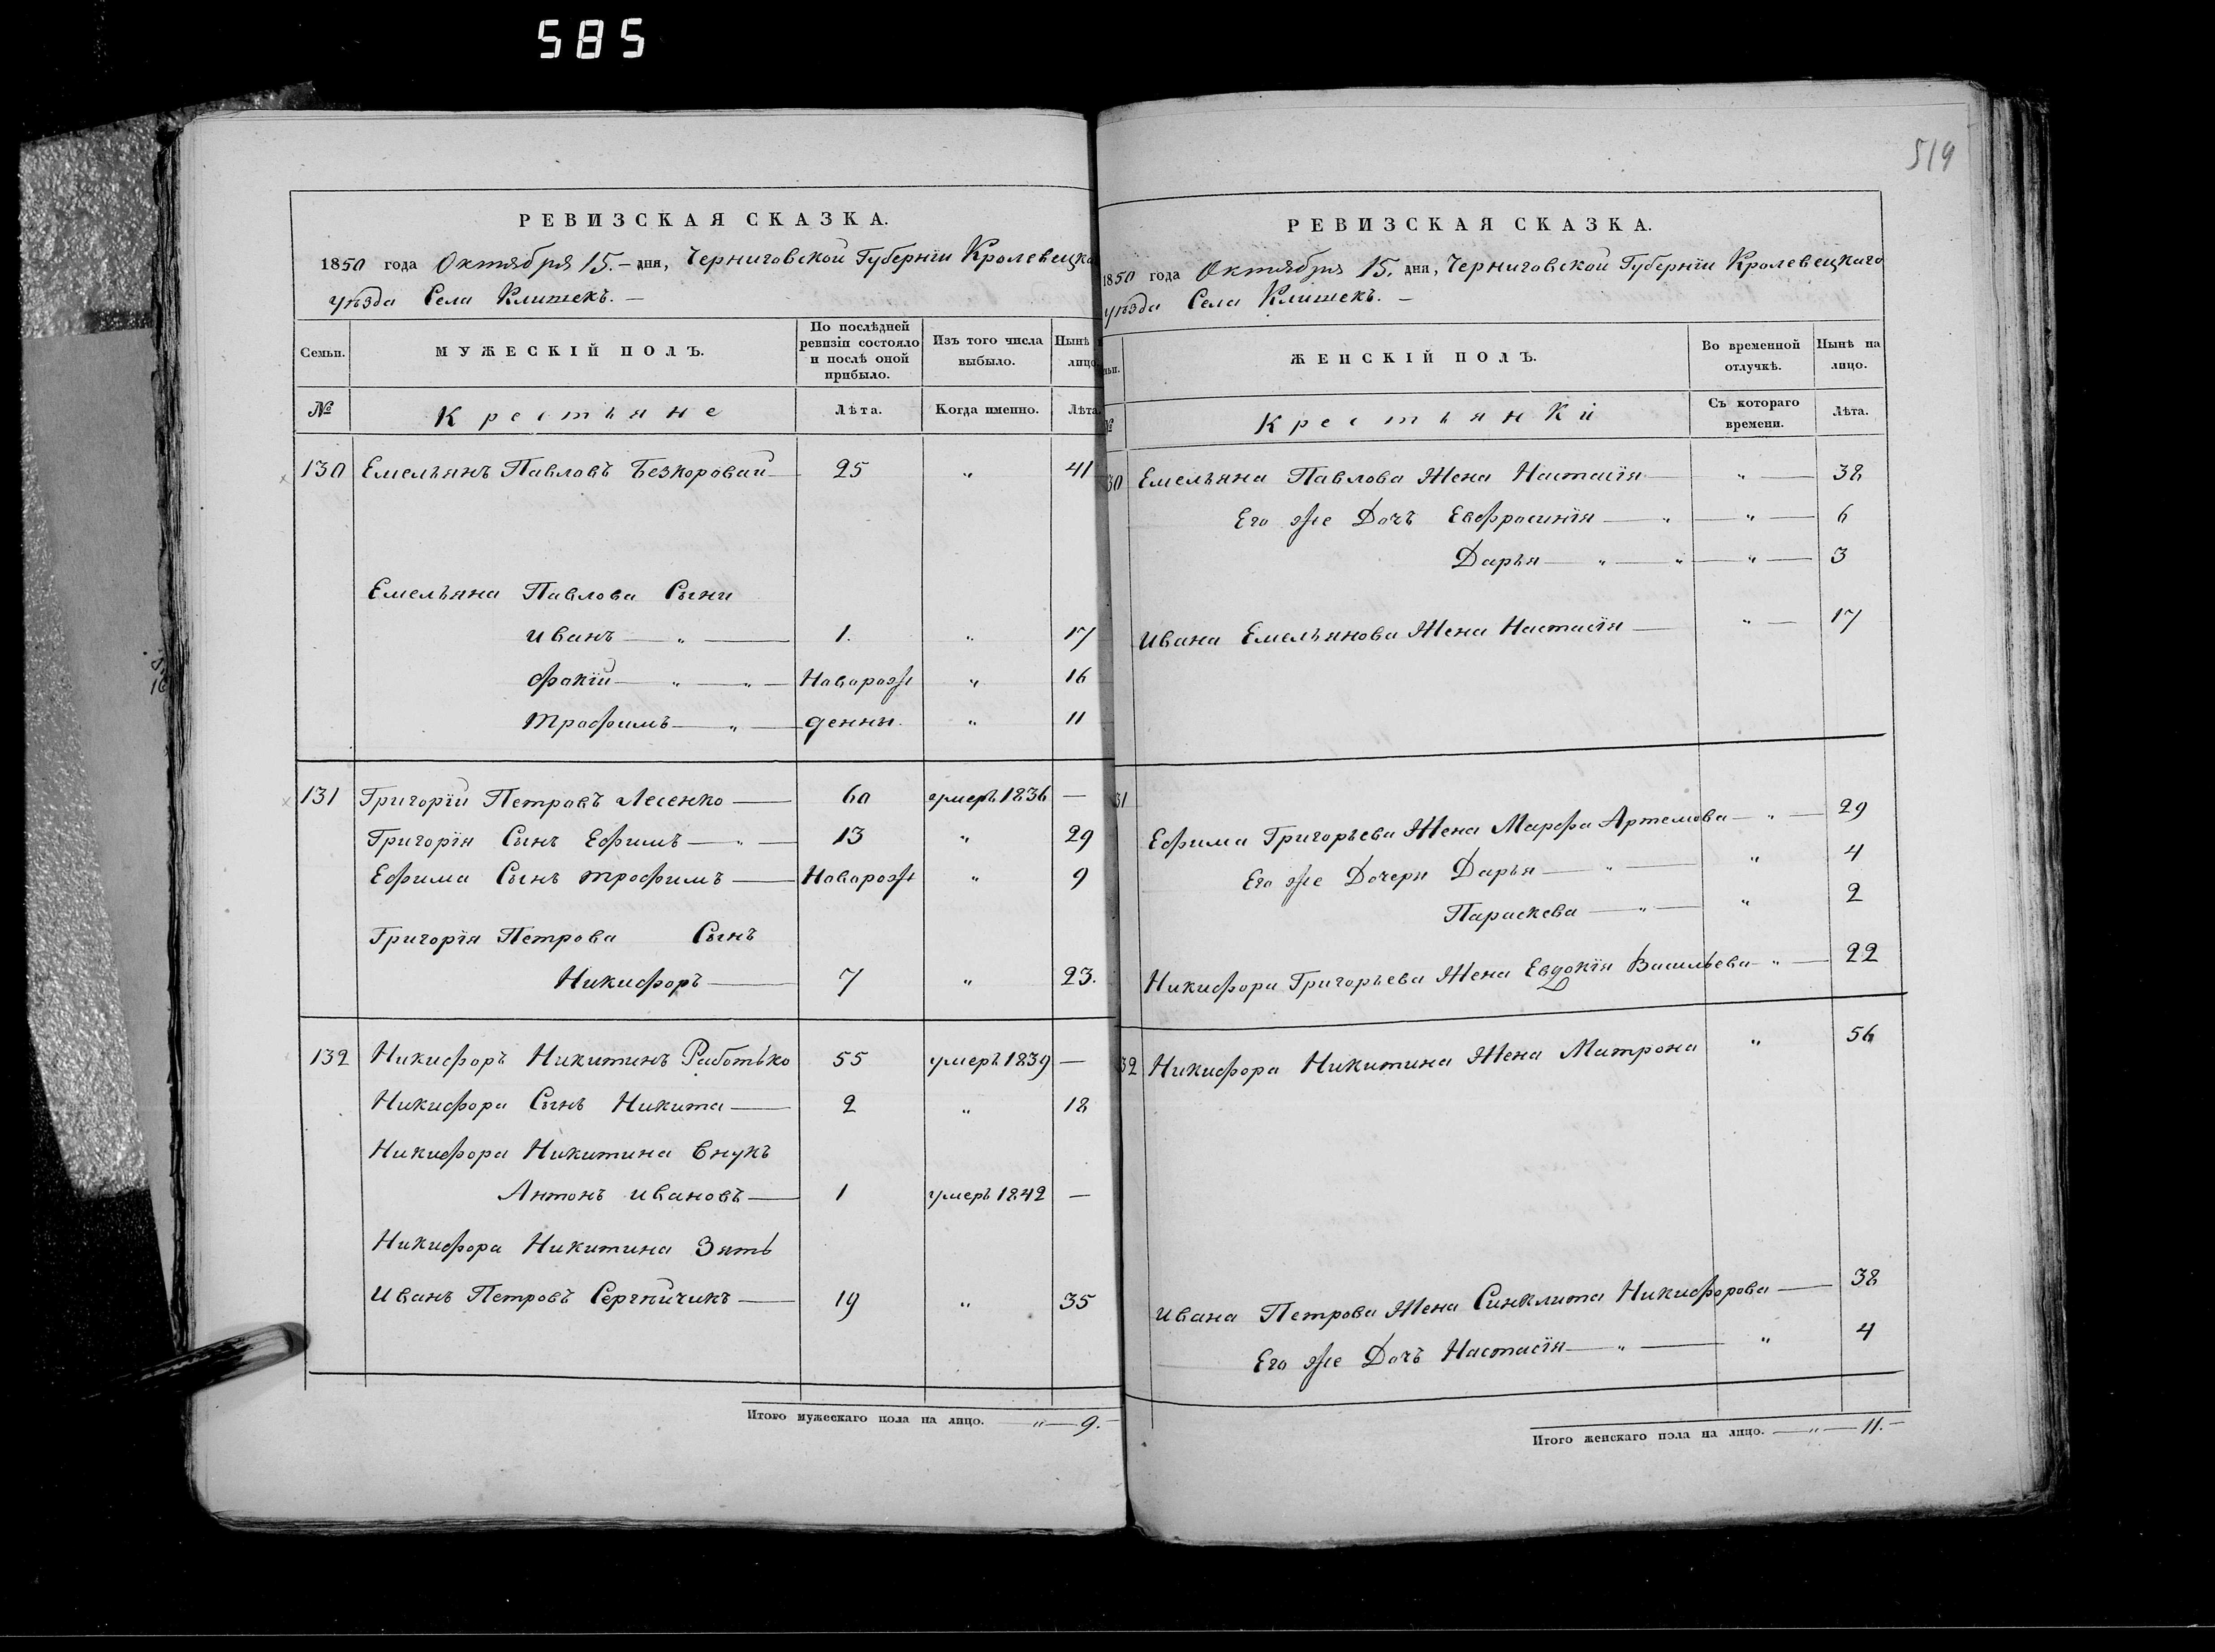 585
РЕВИЗСКАЯ СКАЗКА.
1850 года Октября 15.- дня, Черниговской Губернїи Кролевецка
уѣзда Села Клишекъ. -
Семьи. МУЖЕСКІЙ ПОЛЪ. По послѣдней ревизіи состояло и послѣ оной прибыло. Изъ того числа выбыло. Нынѣ лицо
№ Крестьяне Лѣта. Когда именно. Лѣта.
130 Емельянъ Павловъ Безкоровай 25 " 41
Емельяна Павлова Сыни
Иванъ — " — 1. " 17
Фокїй — " — " — Новорож " 16
Трофимъ — " — денны. " 11
131 Григорїй Петровъ Лесенко — 60 умеръ 1836 —
Григорїя Сынъ Ефимъ — " — 13 " 29
Ефима Сынъ Трофимъ — Новорож " 9
Григорїя Петрова Сынъ
Никифоръ — 7 " 23.
132 Никифоръ Никитинъ Работько 55 умеръ 1839 —
Никифора Сынъ Никита — 2 " 18
Никифора Никитина Внукъ
Антонъ Ивановъ — 1 умеръ 1842 —
Никифора Никитина Зять
Иванъ Петровъ Сергѣйчикъ — 19 " 35
Итого мужескаго пола на лицо. — " — 9. -
519
РЕВИЗСКАЯ СКАЗКА.
1850 года Октября 15. дня, Черниговской Губернїи Кролевецкаго
уѣзда Села Клишекъ. -
ьи. ЖЕНСКІЙ ПОЛЪ. Во временной отлучкѣ. Нынѣ на лицо.
№ Крестьянки Съ котораго времени. Лѣта.
30 Емельяна Павлова Жена Настасїя — " — 38
Его же Дочъ Евфросинїя — " — " — 6
Дарья — " — " — " — 3
Ивана Емельянова Жена Настасїя — " — 17
31
Ефима Григорьева Жена Марфа Артемова — " — 29
Его же Дочери Дарья — " — " 4
Параскева — " — " 2
Никифора Григорьева Жена Евдокїя Васильева — " — 22
32 Никифора Никитина Жена Матрона " 56
Ивана Петрова Жена Синклита Никифорова — 38
Его же Дочъ Настасїя — " — " 4
Итого женскаго пола на лицо. — " — 11. -